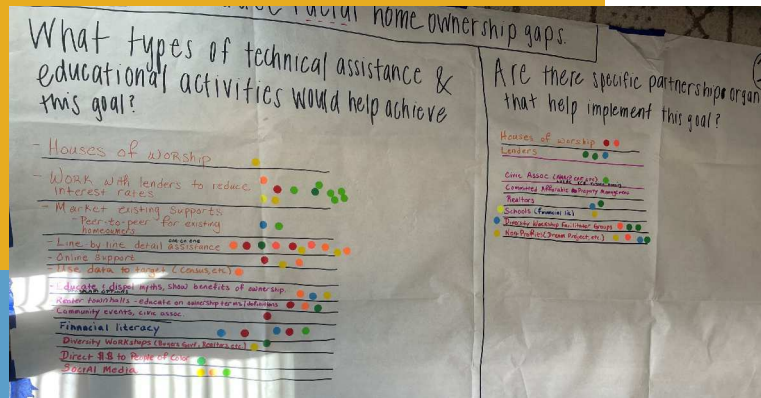 racial home ownership gaps.
What types of technical assistance &
educational activities would help achieve
this goal?
- Houses of worship
- Work with lenders to reduce
interest rates
- Market existing supports
- Peer-to-peer for existing
homeowners
- Line by line detail assistance
one on one
- Online support
- Use data to target (census, etc)
- Educate & dispel myths, show benefits of ownership
Render townhalls - educate on ownership terms/definitions
Community events, civic assoc.
Financial literacy
Diversity Workshops (Buyers, Govt, Realtors, etc)
Direct $$ to People of Color
Social Media
Are there specific partnerships organ
that help implement this goal?
Houses of worship
Lenders
Civic Assoc
Committed Affordable Property
Realtors
Schools (Financial lit)
Diversity Workshop Facilitator Groups
Non Profits (Dream Project, etc.)